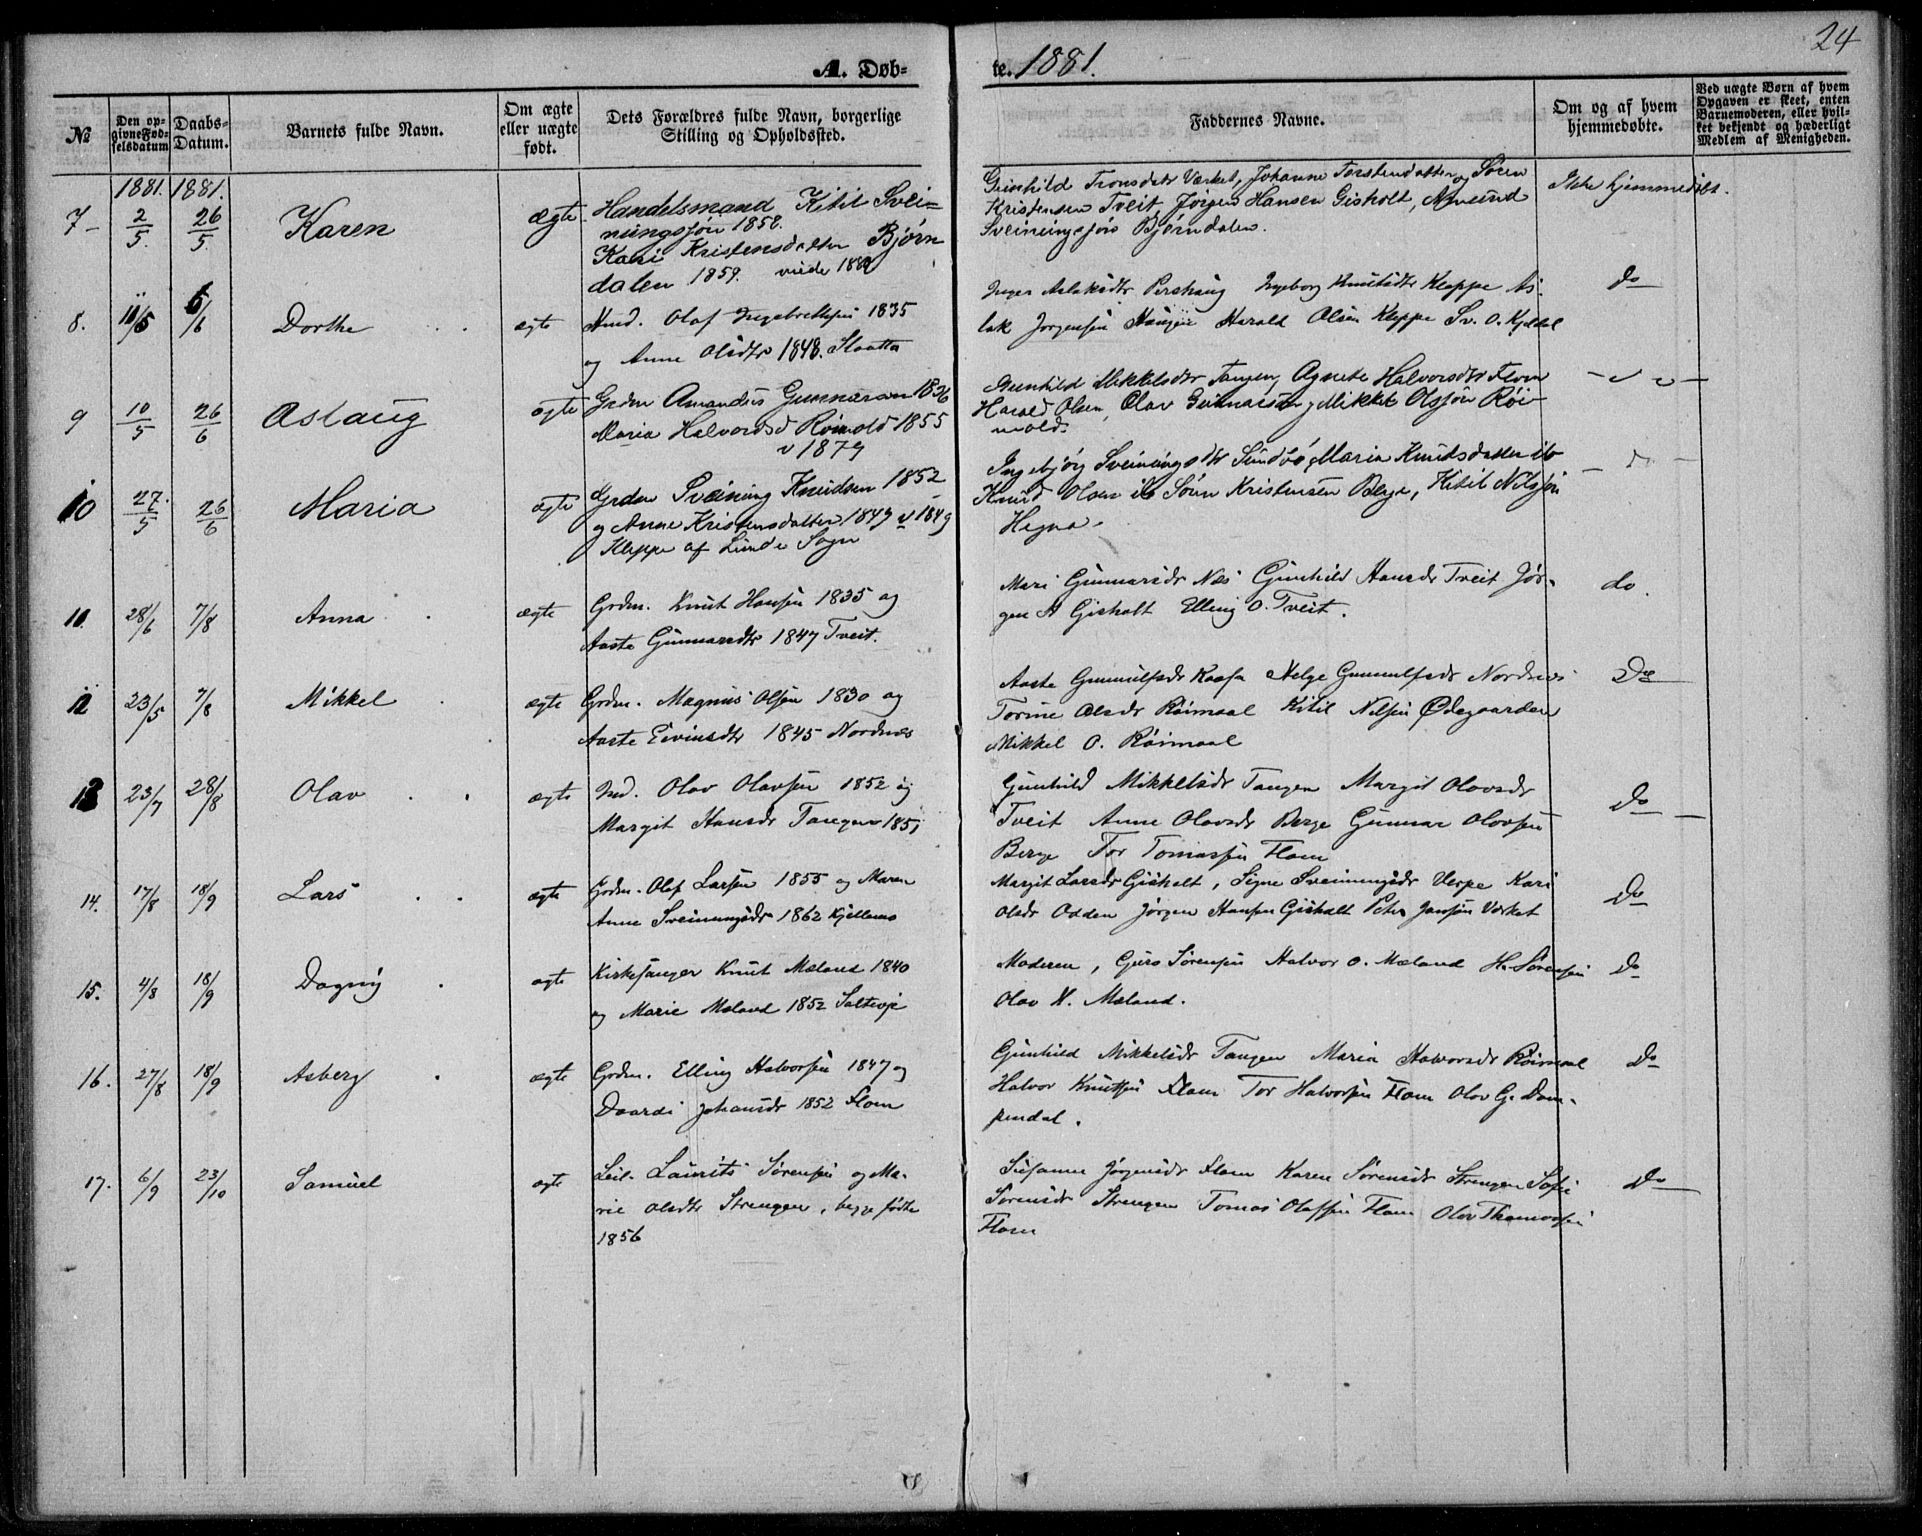 24
A. Døb-
te. 1881.
№
Den op-
givne Fød-
selsdatum
Daabs-
Datum.
Barnets fulde Navn.
Om ægte
eller uægte
født.
Dets Forældres fulde Navn, borgerlige
Stilling og Opholdssted.
Faddernes Navne.
Om og af hvem
hjemmedøbte.
Ved uægte Børn af hvem
Opgaven er skeet, enten
Barnemoderen, eller hvil-
ket bekjendt og hæderligt
Medlem af Menigheden.
1881. 1881.
7 2/5. 26/5. Karen ægte. Handelsmand Kitil Svei-
nungssøn 1858.
Kari Kristensdatter Bjørn
dalen 1859. viede
Gunhild Tronsdatr Værket, Johanne Torstensdatter og Søren
Kristensen Tveit, Jørgen Hansen Gisholt, Amund
Sveinungssøn Bjørndalen.
Ikke hjemmedøbt.
8. 11/5 6/6 Dorthe ægte Olaf Ingebretsen 1835
og Anne Olsdtr 1848. Slaatta
Inger Aslaksdtr Ingeborg Knutsdtr Kleppe As-
lak Jørgensen Haugen Harald Olsen Kleppe Sv. O. Kjeldal
Do
9 10/5 26/6 Aslaug ægte Grdm Amandus Gunnarsen 1836
Maria Halvorsd Roimold 1855
v 1879
Gunhild Mikkelsdtr Tangen, Agnete Halvorsdtr Flom
Harald Olsen, Olav Gunnarsen, Mikkel Olssøn Roi-
mold.
10 27/5 26/6 Maria ægte Grdm Sveinung Knudsen 1852
og Anne Kristensdatter 1847 v 1849
Kleppe af Lunde Sogn
Ingebjørg Sveinungsdtr Sundbø, Maria Knudsdatter ib
Knud Olsen ib Søren Kristensen Berge, Kitil Nilssøn
Hegna.
11. 28/6 7/8 Anna ægte Grdm. Knut Hansen 1835 og
Aaste Gunnarsdtr 1847 Tveit.
Mari Gunnarsdr Næs Gunhild Hansdr Tveit Jør-
gen H Gisholt Elling O. Tveit.
do.
12 23/5 7/8 Mikkel ægte Grdm. Magnus Olsen 1830 og
Aaste Eivindsdtr 1845 Nordnæs
Aaste Gunnulfsdr Kaasa Helge Gunnulfsdr Nordnæs
Torine Olsdr Roimaal Kitil Nilsen Ødegaarden
Mikkel O. Roimaal
Do
13 23/7 28/8 Olav ægte Olav Olavsen 1852 og
Margit Hansdr Tangen 1851
Gunhild Mikkelsdr Tangen Margit Olavsdr
Tveit Anne Olavsdr Berge Gunnar Olavsen
Berge Tor Tomassen Flom
Do
14. 17/8 18/9 Lars ægte Grdm. Olaf Larsen 1855 og Maren
Anne Sveinungsdr 1862 Kjellemo
Margit Larsdr Gisholt, Signe Sveinungsdr Verpe Kari
Olsdr Odden Jørgen Hansen Gisholt Peter Jonsøn Værket
Do
15. 4/8 18/9 Dagny ægte Kirkesanger Knut Mæland 1840
og Marie Mæland 1852
Moderen, Guro Sørensen Halvor O. Mæland H. Sørensen
Olav H. Mæland.
Do
16. 27/8 18/9 Asberg ægte Grdm. Elling Halvorsen 1847 og
Daardi Johansdr 1852 Flom
Gunhild Mikkelsdr Tangen Maria Halvorsdr Roimaal
Halvor Knutsen Flom Tor Halvorsen Flom Olov G. Dom-
pendal.
Do
17. 6/9 23/10 Samuel ægte Leil. Laurits Sørensen og Ma-
rie Olsdtr Strengen, begge fødte
1856
Susanne Jørgensdr Flom Karen Sørensdr Strengen Sofie
Sørensdr Strengen Tomas Olafsen Flom Olav
Flom
Do